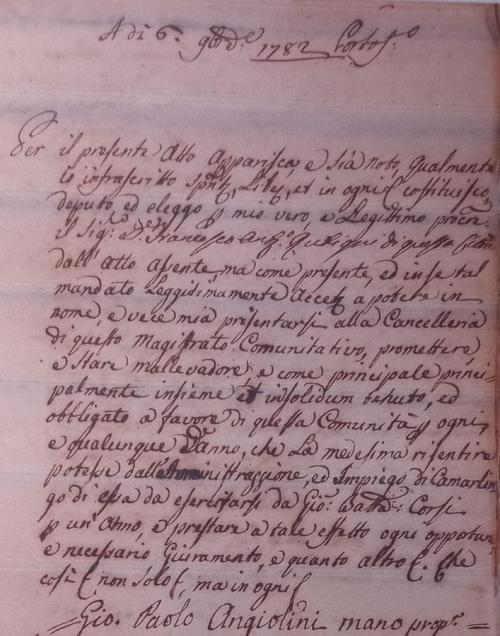 A di 6: 9bre 1782 Porto f.o
Per il presente Atto Apparisca, e sia noto, qualmente
io infrascritto Spont.e, Lib.e, et in ogni costituisco,
deputo, ed eleggo p mio vero, e Legittimo procre:
il Sig.e Francesco di questa Città
dall'atto assente, ma come presente, ed in se tal
mandato Leggitimamente Accett. a potere in
nome, e vece mia presentarsi alla Cancelleria
di questo Magistrato Comunitativo, promettere,
e stare mallevadore, e come principale princi-
palmente insieme et insolidum tenuto, ed
obbligato a favore di questa Comunità p ogni,
e qualunque Danno, che La medesima risentire
potesse dall'Amministrazzione, ed Impiego di Camarlin-
go di essa da esercitarsi da Gio: Batta: Corsi
p un'Anno, e prestare a tale effetto ogni opportun,
e necessario Giuramento, e quanto altro &. che
così &. non solo &., ma in ogni
= Gio. Paolo Angiolini mano prop.a =